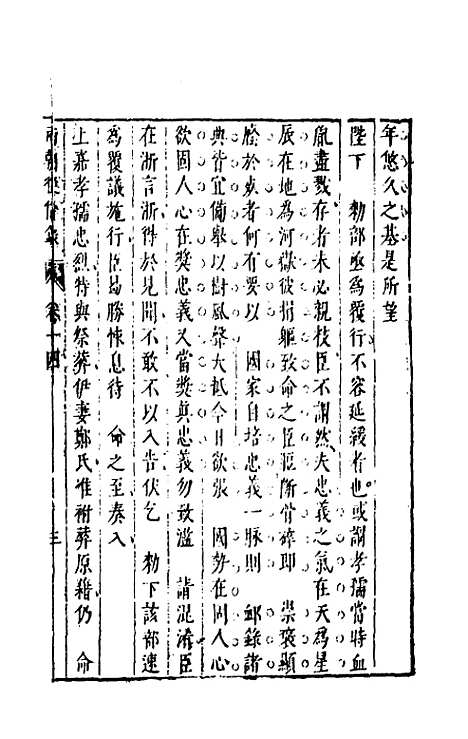 年悠久之基是所望
陛下　勑部亟為覆行不容延緩者也或謂孝孺當時血
胤盡戮存者未必親枝臣不謂然夫忠義之氣在天為星
辰在地為河嶽彼捐軀致命之臣區所骨碎即　崇褒顯
於異者何有要以　國家自培忠義一脉則　邮錄諸
典皆宜備舉以樹風聲大抵今日欲張　國勢在固人心
欲固人心在獎忠義又當獎真忠義勿致濫　請混淆臣
在浙言浙得於見聞不敢不以入告伏乞　勑下該部速
為覆議施行臣曷勝悚息待　命之至奏入
上嘉孝孺忠烈特與祭葬伊妻鄭氏准祔葬原籍仍　命
兩朝從信錄　卷十四　三